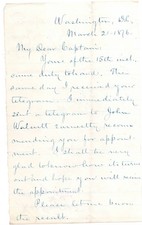 Washington, D.C.
March 21 1876.
My Dear Captain
Yours of the 18th inst,
came duly to hand. The
same day I received your
telegram I immediately
sent a telegram to John
Walcutt earnestly recom
mending you for appoint
ment. I shall be very
glad to know how it turns
out and hope you will receive
the appointment.
Please let me know
the result.